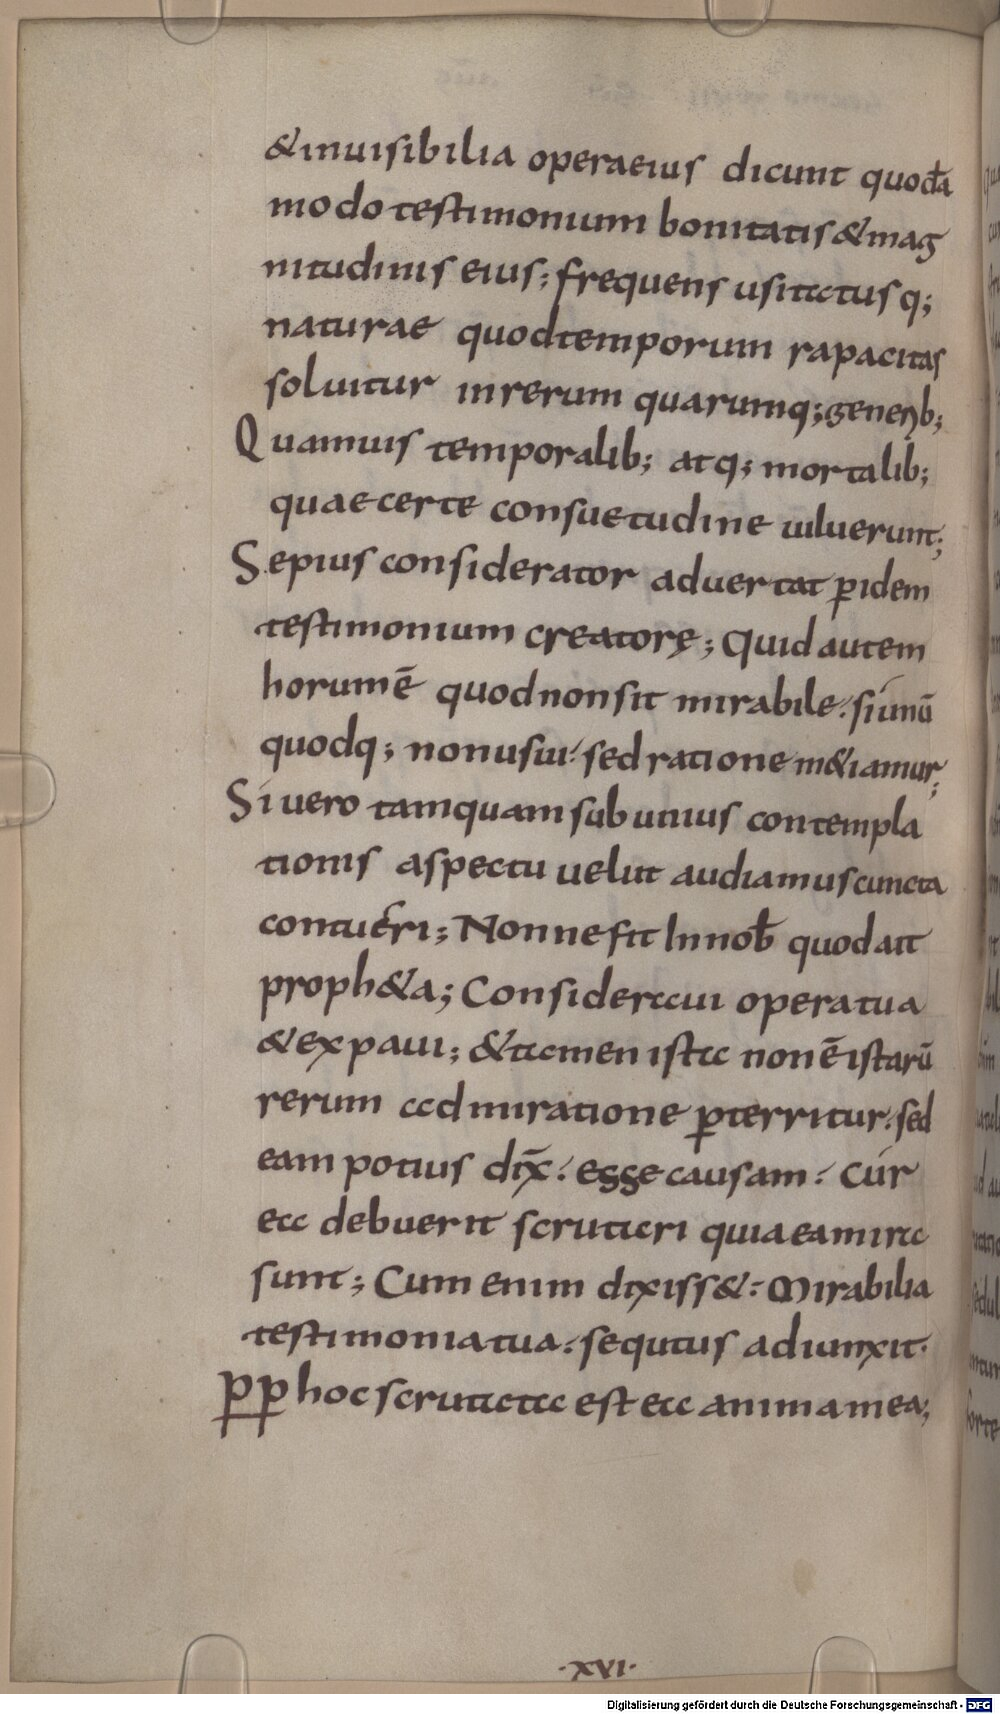 &inuisibilia operaeius dicunt quodā
modo testimonium bonitatis &mag
nitudinis eius; frequens usitatusq;
naturae quodtemporum rapacitas
soluitur inrerum quarumq; generib;
Quamuis temporalib; atq; mortalib;
quaecerte consuetudine uiluerunt;
Sepius considerator aduertat ꝑidem
testimonium creatoris; Quid autem
horumē quodnonsit mirabile. siunū
quodq; nonusui. sed ratione m&iamur;
Si uero tamquam sub unius contempla
tionis aspectu uelut audiamus cuncta
contueri; Nonnefit Innob̄ quodait
proph&a; Consideraui operatua
&expaui; &tamen ista nonē istarū
rerum admiratione ꝑterritur. sed
eam potius dix̄. egge causam. Cur
ea debuerit scrutari quiaeamira
sunt; Cum enim dixiss&. Mirabilia
testimoniatua. sequtus adiunxit.
ꝑꝑ hoc scrutata est ea animamea;
·XVI·
Digitalisierung gefördert durch die Deutsche Forschungsgemeinschaft - DFG